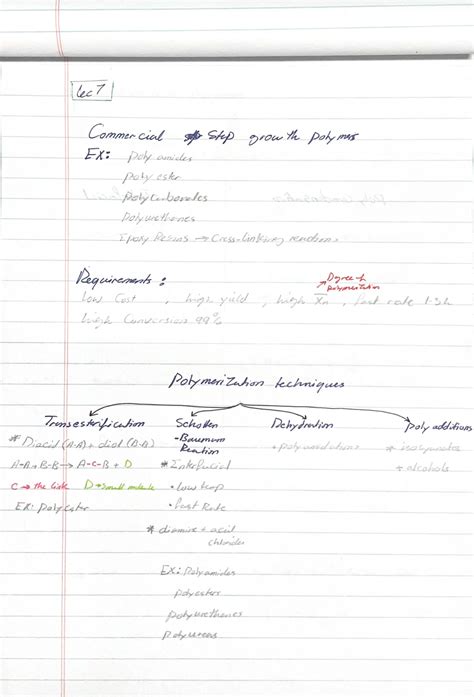 Lec 7
Commercial Step growth polymers
EX: Poly amides
Poly ester
Polycarbonates
Polyurethenes
Epoxy Resins → Cross-linking reactions
Requirements:
Degree of
polymerization
low Cost, high yield, high Xn, fast rate 1-3h
high Conversion 99%
Polymerization techniques
Transesterification
* Diacid (A-A) + diol (B-B)
A-A + B-B → A-C-B + D
C → the link D → small molecule
EX: Polyester
Schotten
-Baumann
Reaction
* Interfacial
• low temp
• fast Rate
* diamine + acid
chlorides
EX: Polyamides
polyesters
polyurethenes
polyureas
Dehydration
Poly additions
* isocyanates
+ alcohols